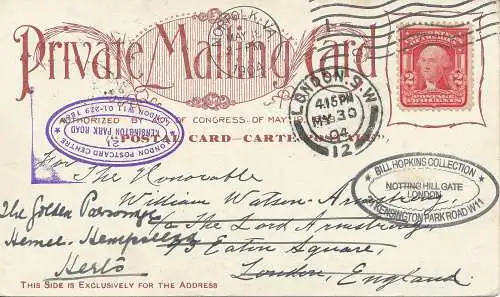 Private Mailing Card
NORFOLK, VA.
MAY
1904
2 2
POSTAGE
TWO CENTS
LONDON. S.W
4.15 PM
MY 30
04
12
AUTHORIZED BY ACT OF CONGRESS OF MAY 19,
"POSTAL CARD - CARTE POSTALE"
LONDON POSTCARD CENTRE
21
KENSINGTON PARK ROAD
LONDON W11 01-229 1888
BILL HOPKINS COLLECTION
NOTTING HILL GATE
LONDON
KENSINGTON PARK ROAD W11
For The Honorable
William Watson-Armstrong,
c/o The Lord Armstrong,
Eaton Square,
London, England.
The Golden Parsonage
Hemel Hempstead
Herts
THIS SIDE IS EXCLUSIVELY FOR THE ADDRESS